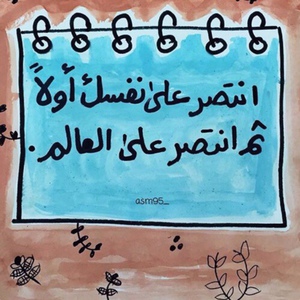 انتصر على نفسك أولاً
ثم انتصر على العالم.
asm95_